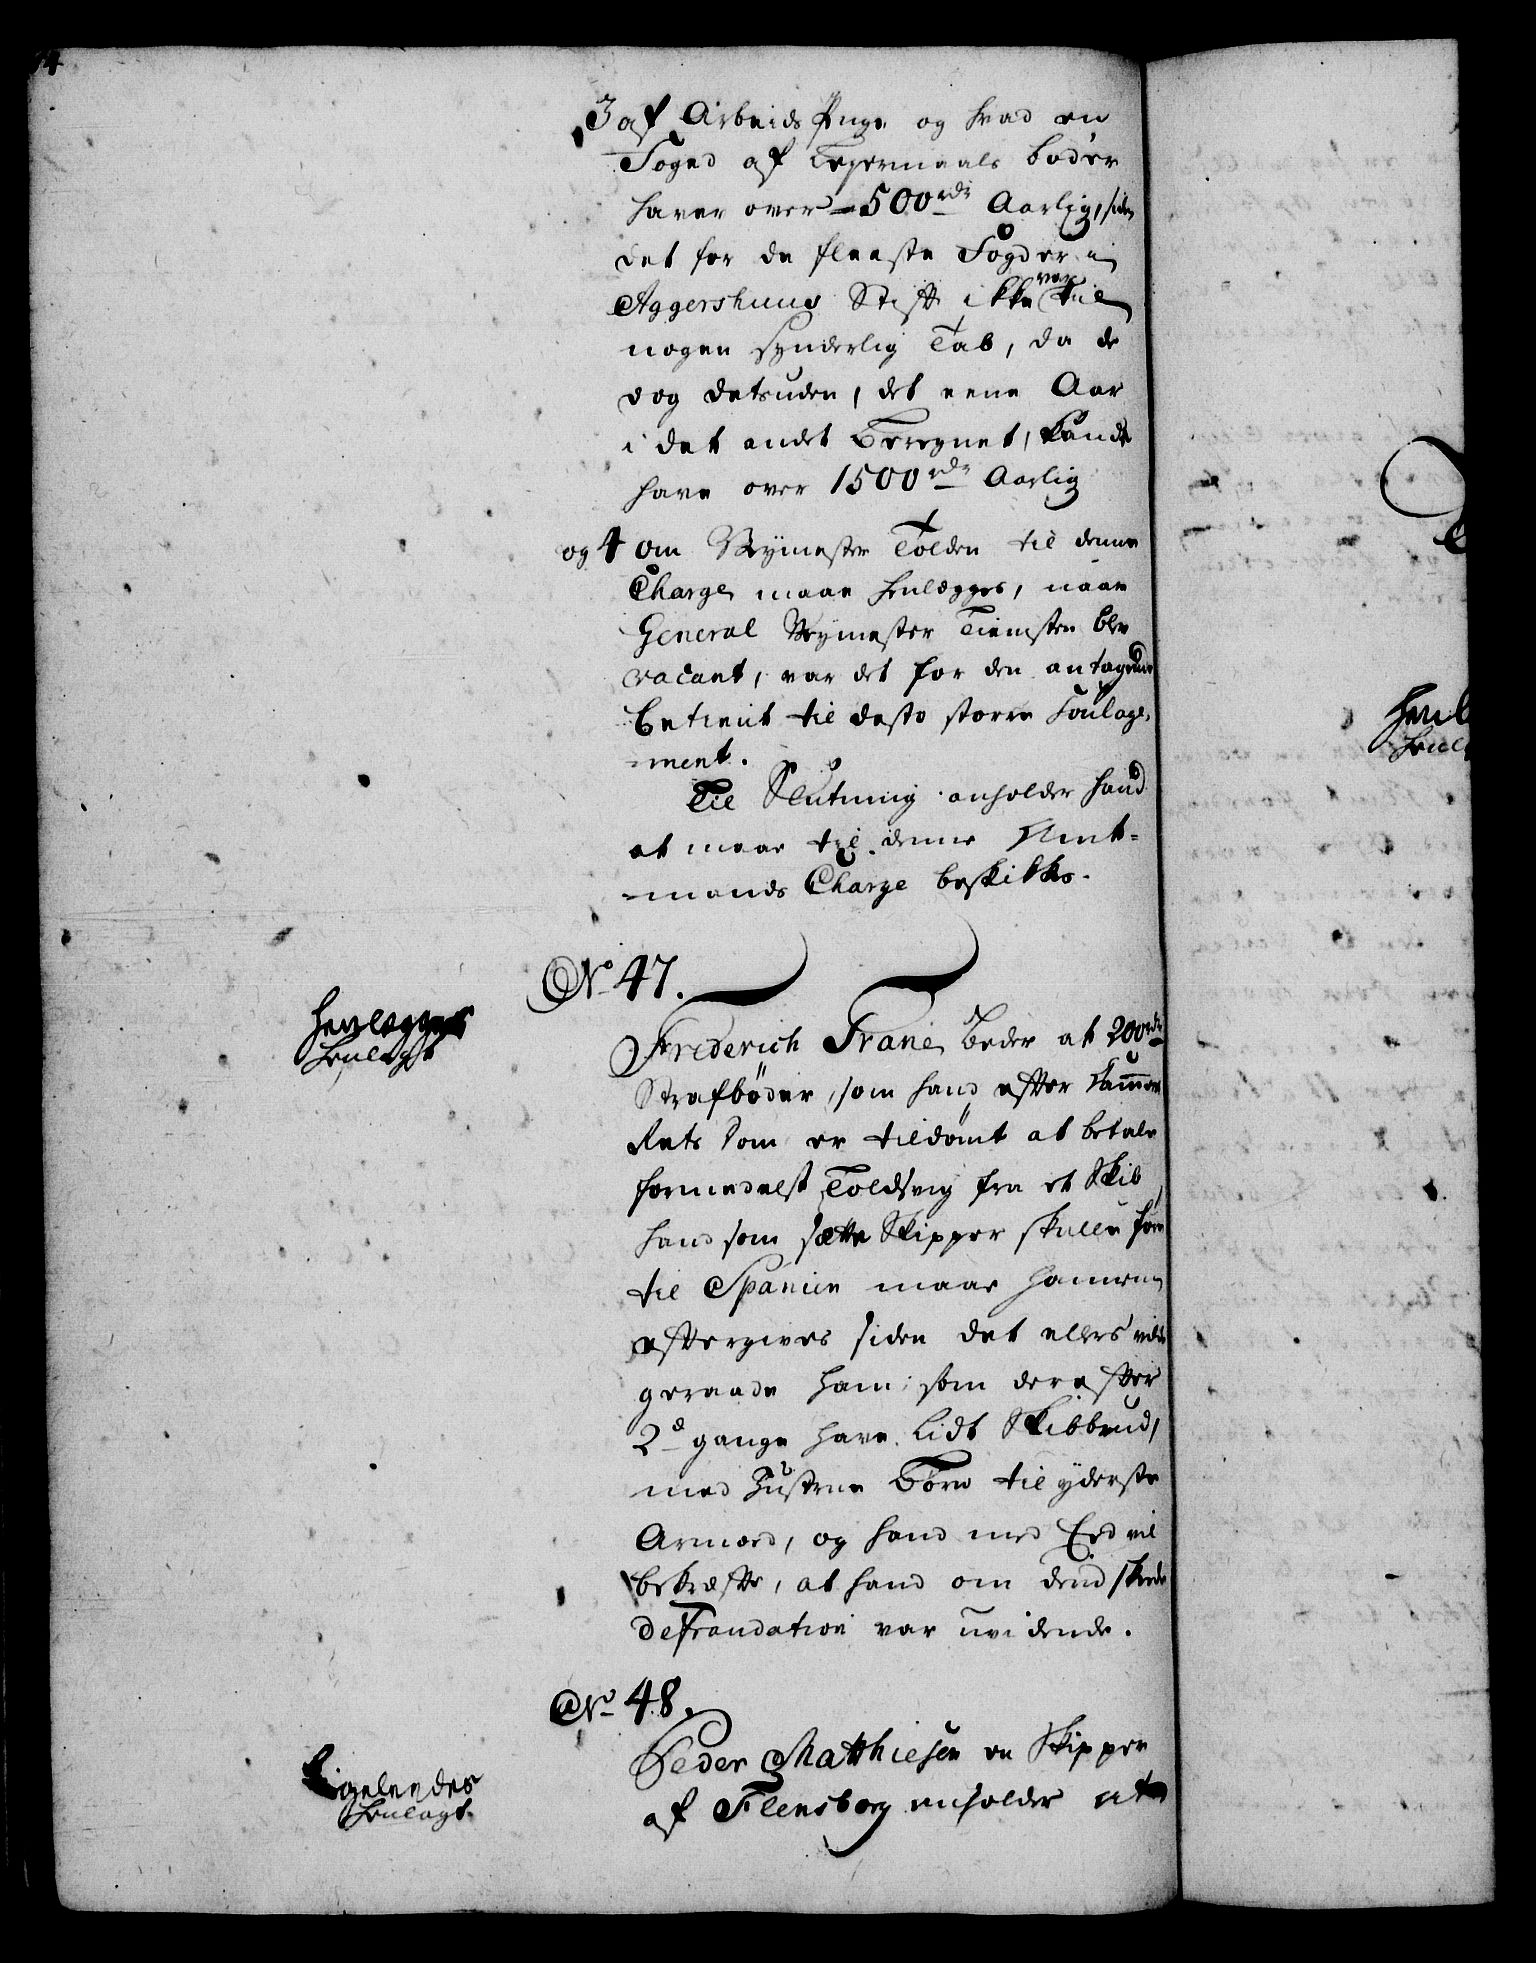 3 af Arbeids Penge og hvad en
Foged af Leyermaals bøder
haver over 500 rdr Aarlig, siden
det for de fleeste Fogder i
Aggershuus Stift ikke var til
nogen synderlig Tab, da de
dog desuden, det eene Aar
i det andet Beregnet, kunde
have over 1500 rdr Aarlig
og 4 om Veymester Tolden til denne
Charge maae henlægges, naar
General Veymester Tienesten blev
vacant, var det for den antagende
Betient til desto større Soulage-
-ment.
Til Slutning anholder hand
at maae til denne Amt-
-mands Charge beskikkes.
No 47.
henlegges
henlagt
Frederich Trane beder at 200 rdr
Strafbøder, som hand efter Kammer
Rets Dom er tildømt at betale
formedelst Toldsvig fra et Skib
hand som sætte Skipper skulle føre
til Spanien maae hannem
eftergives siden det ellers vilde
geraade ham, som derefter
2de gange have lidt Skibbrud,
med Hustrue Børn til yderste
Armoed, og hand med Eed vil
bekræfte, at hand om dend skeede
defraudation var uvidende.
No 48.
Ligeleedes
henlagt.
Peder Matthiesen en Skipper
af Flensborg anholder at